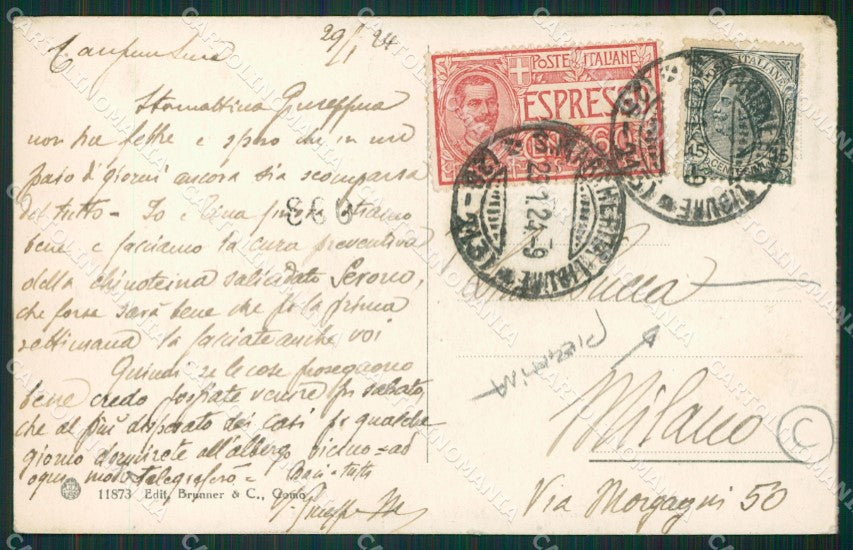 29/1 24
Stamattina Giuseppina
non ha febbre e spero che in un
paio di giorni ancora sia scomparsa
del tutto - Io e stiamo
bene e facciamo la cura preventiva
della salicilato Serono,
che forse sarà bene che per la prima
settimana la facciate anche voi
Quindi se le cose proseguono
bene credo possiate venire per sabato
che al più disperato dei casi per qualche
giorno dormirete all'albergo vicino = ad
ogni modo telegraferò = Baci tutti
11873 Edit. Brunner & C., Como
POSTE ITALIANE
ESPRESSO
S. MARGHERITA LIGURE
29.1.24-9
POSTE ITALIANE
15
LIGURE
Lucca
PIERMINA
Milano
C
Via Morgagni 50